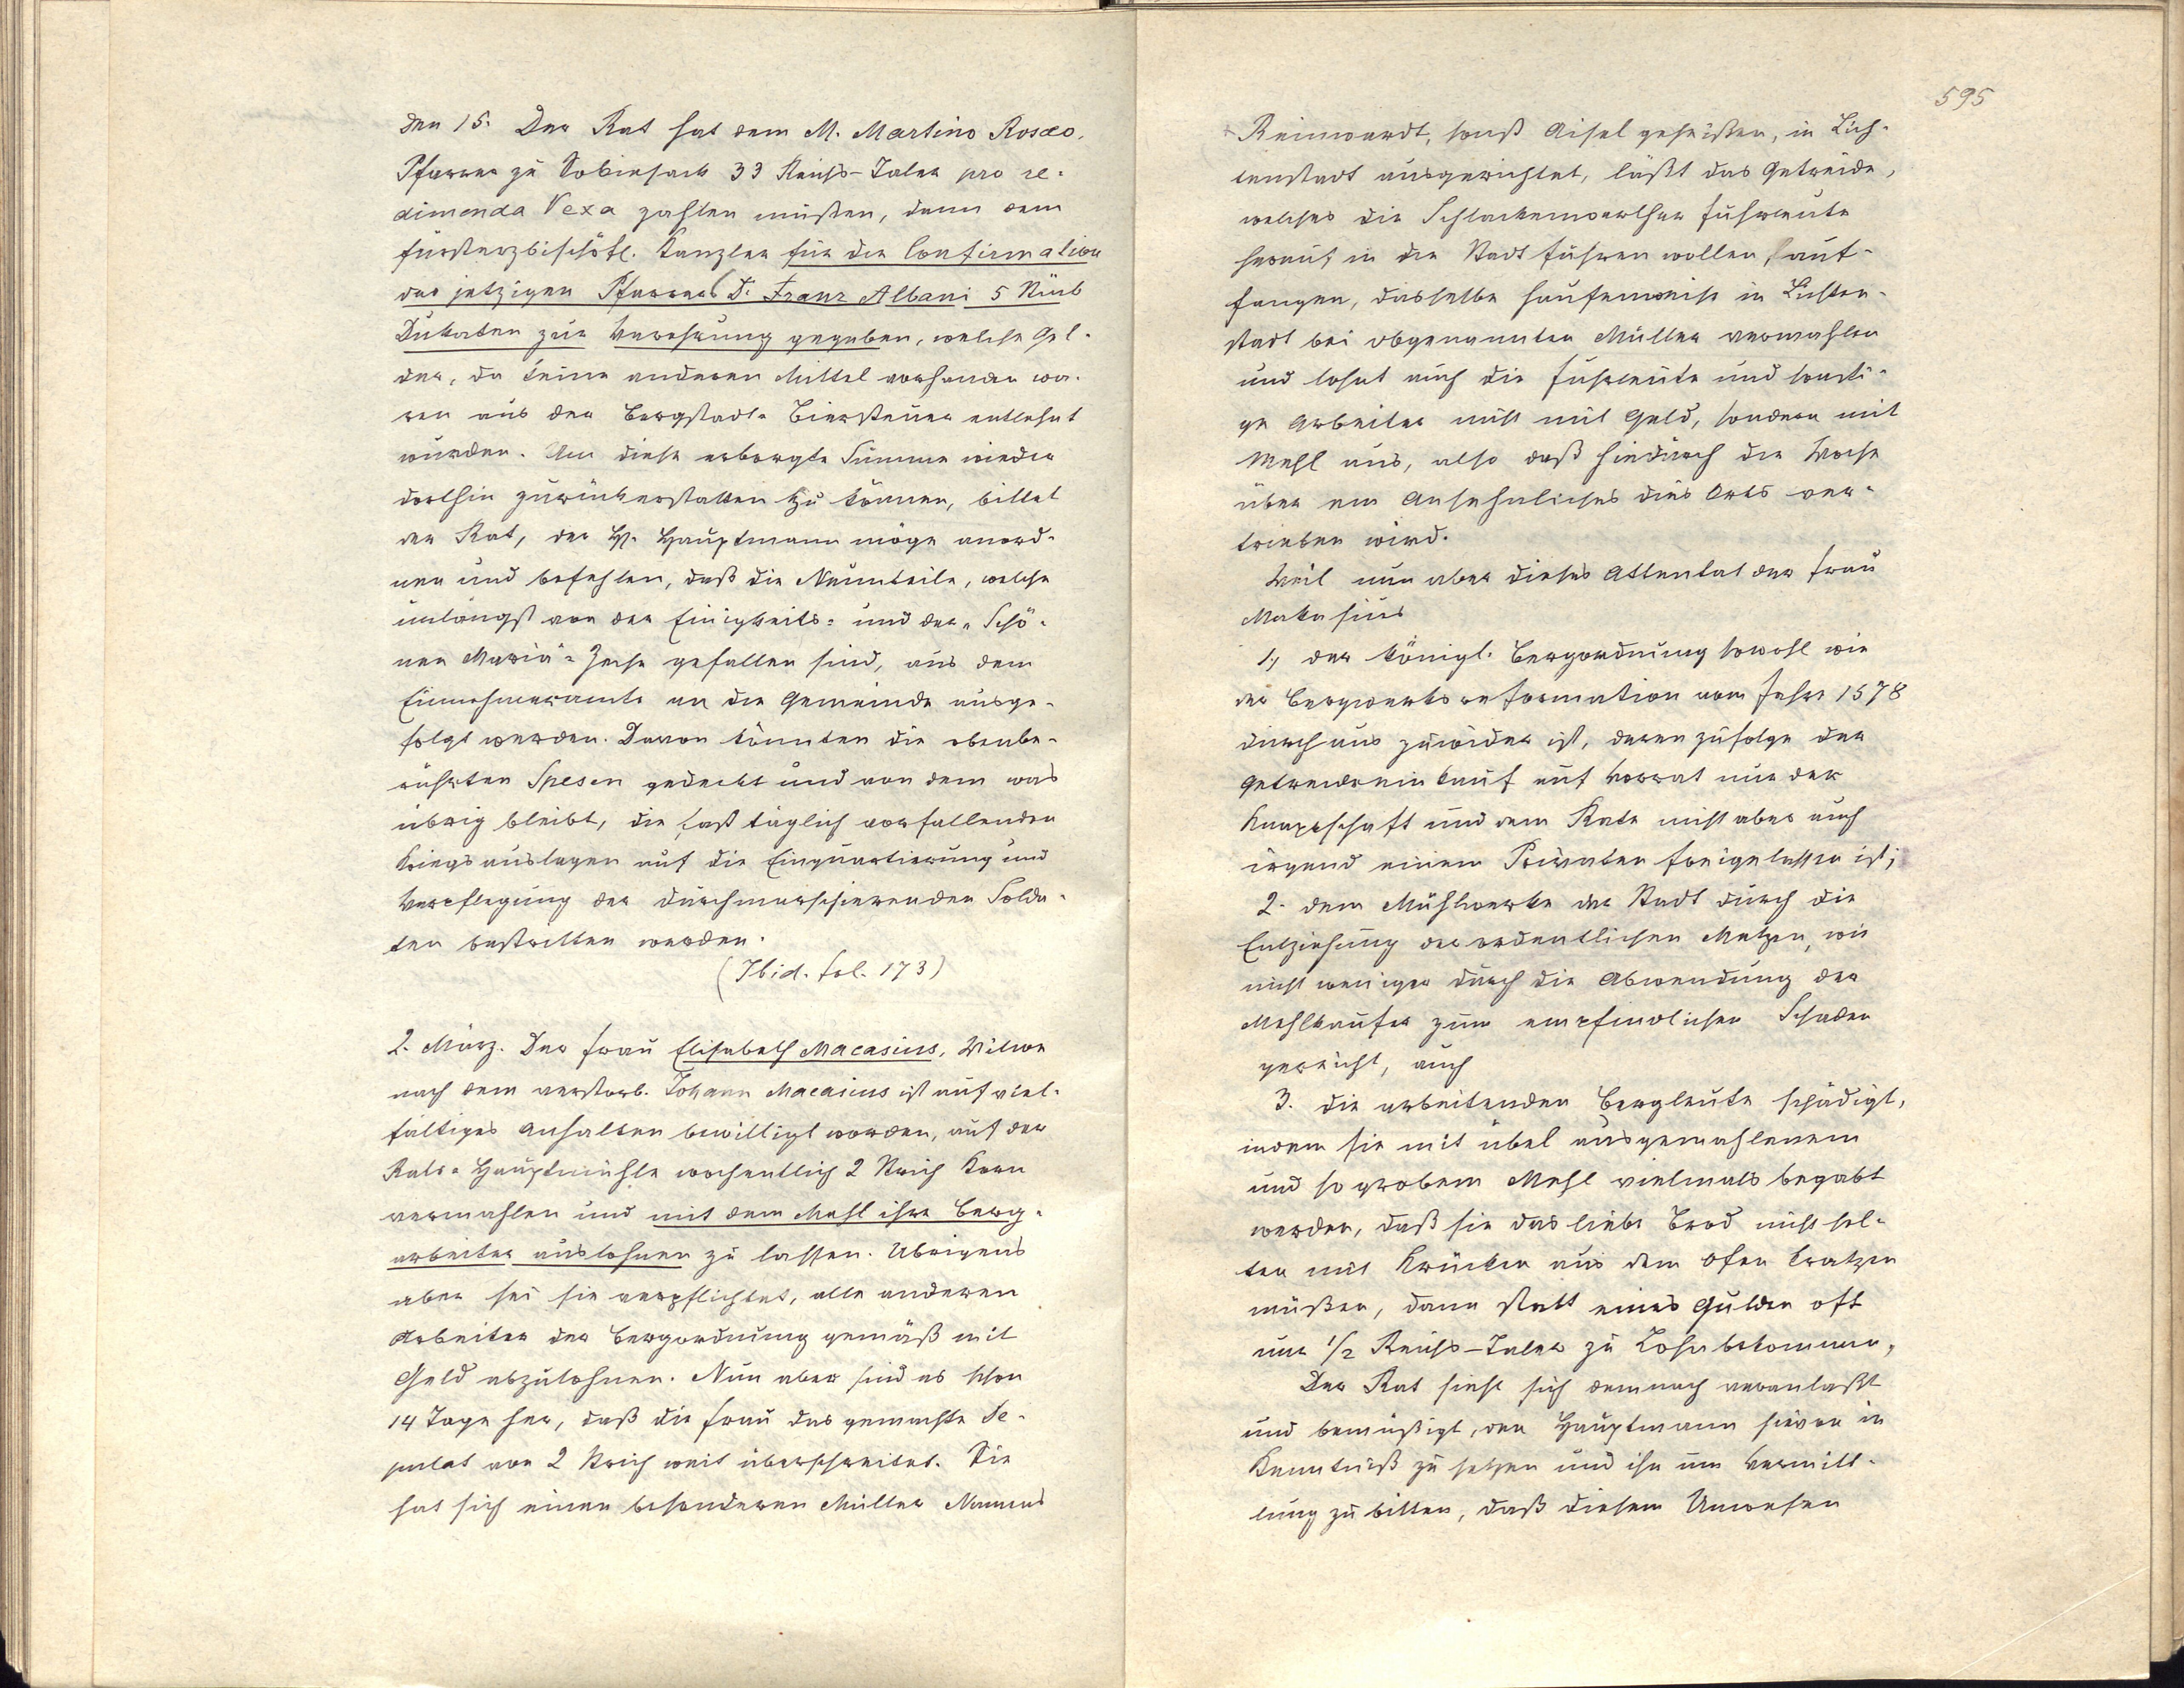 den 15. Der Rat hat dem M. Martino Rosæo,
Pfarrer zu Sobiesack 33 Reichs-Taler pro re-
dimenda Vexa zahlen müßen, dann dem
fürsterzbischöfl. Kanzler für die Confirmation
des jetzigen Pfarrers D. Franz Albani 5 Stück
Dukaten zur Verehrung gegeben, welche Gel-
der, da keine anderen Mittel vorhanden wa-
ren aus der Bergstadt-Biersteuer entlehnt
wurden. Um diese erborgte Summe wieder
dorthin zurückerstatten zu können, bittet
der Rat, der H. Hauptmann möge anord-
nen und befehlen, daß die Neunteile, welche
unlängst von der Einigkeits- und der „Schö-
nen Maria"-Zeche gefallen sind, aus dem
Einnehmeramte an die Gemeinde ausge-
folgt werden. Davon könnten die obenbe-
rührten Spesen gedeckt und von dem was
übrig bleibt, die fast täglich vorfallenden
Kriegsauslagen auf die Einquartierung und
Verpflegung der durchmarschierenden Solda-
ten bestritten werden.
(Ibid. fol. 173)
2. März. Der Frau Elisabeth Macasius, Witwe
nach dem verstorb. Johann Macasius ist auf viel-
fältiges Anhalten bewilligt worden, auf der
Rats-Hauptmühle wochentlich 2 Strich Korn
vermahlen und mit dem Mehl ihre Berg-
arbeiter auslohnen zu lassen. Übrigens
aber sei sie verpflichtet, alle anderen
Arbeiter der Bergordnung gemäß mit
Geld abzulohnen. Nun aber sind es schon
14 Tage her, daß die Frau das gemachte De-
putat von 2 Strich weit überschreitet. Sie
hat sich einen besonderen Müller Namens
595
Reinwardt, sonst Aisel geheißen, in Lich-
tenstadt ausgerichtet, läßt das Getreide,
welches die Schlackenwerther Fuhrleute
herauf in die Stadt führen wollen, auf-
fangen, dasselbe haufenweise in Lichten-
stadt bei obgenannten Müller vermahlen
und lohnt auch die Fuhrleute und sonsti-
ge Arbeiter nicht mit Geld, sondern mit
Mehl aus, also daß hiedurch die Woche
über ein Ansehnliches dies Orts ver-
trieben wird.
Weil nun aber dieses Attentat der Frau
Makasius
1, der königl. Bergordnung sowohl wie
der Bergwerksreformation vom Jahre 1578
durchaus zuwider ist, derenzufolge der
Getreideeinkauf auf Vorrat nur der
Knappschaft und dem Rate nicht aber auch
irgend einem Privaten freigelassen ist;
2. dem Mühlwerke der Stadt durch die
Entziehung der ordentlichen Metzen, wie
nicht weniger durch die Abwendung der
Mehlkäufer zum empfindlichen Schaden
gereicht, auch
3. die arbeitenden Bergleute schädigt,
indem sie mit übel ausgemahlenem
und so grobem Mehl vielmals begabt
werden, daß sie das liebe Brod nicht sel-
ten mit Krücken aus dem Ofen kratzen
müßen, dann statt eines Gulden oft
nur 1/2 Reichs-Taler zu Lohn bekommen,
Der Rat sieht sich demnach veranlaßt
und bemüßigt, den Hauptmann hievon in
Kenntniß zu setzen und ihn um Vermitt-
lung zu bitten, daß diesem Unwesen